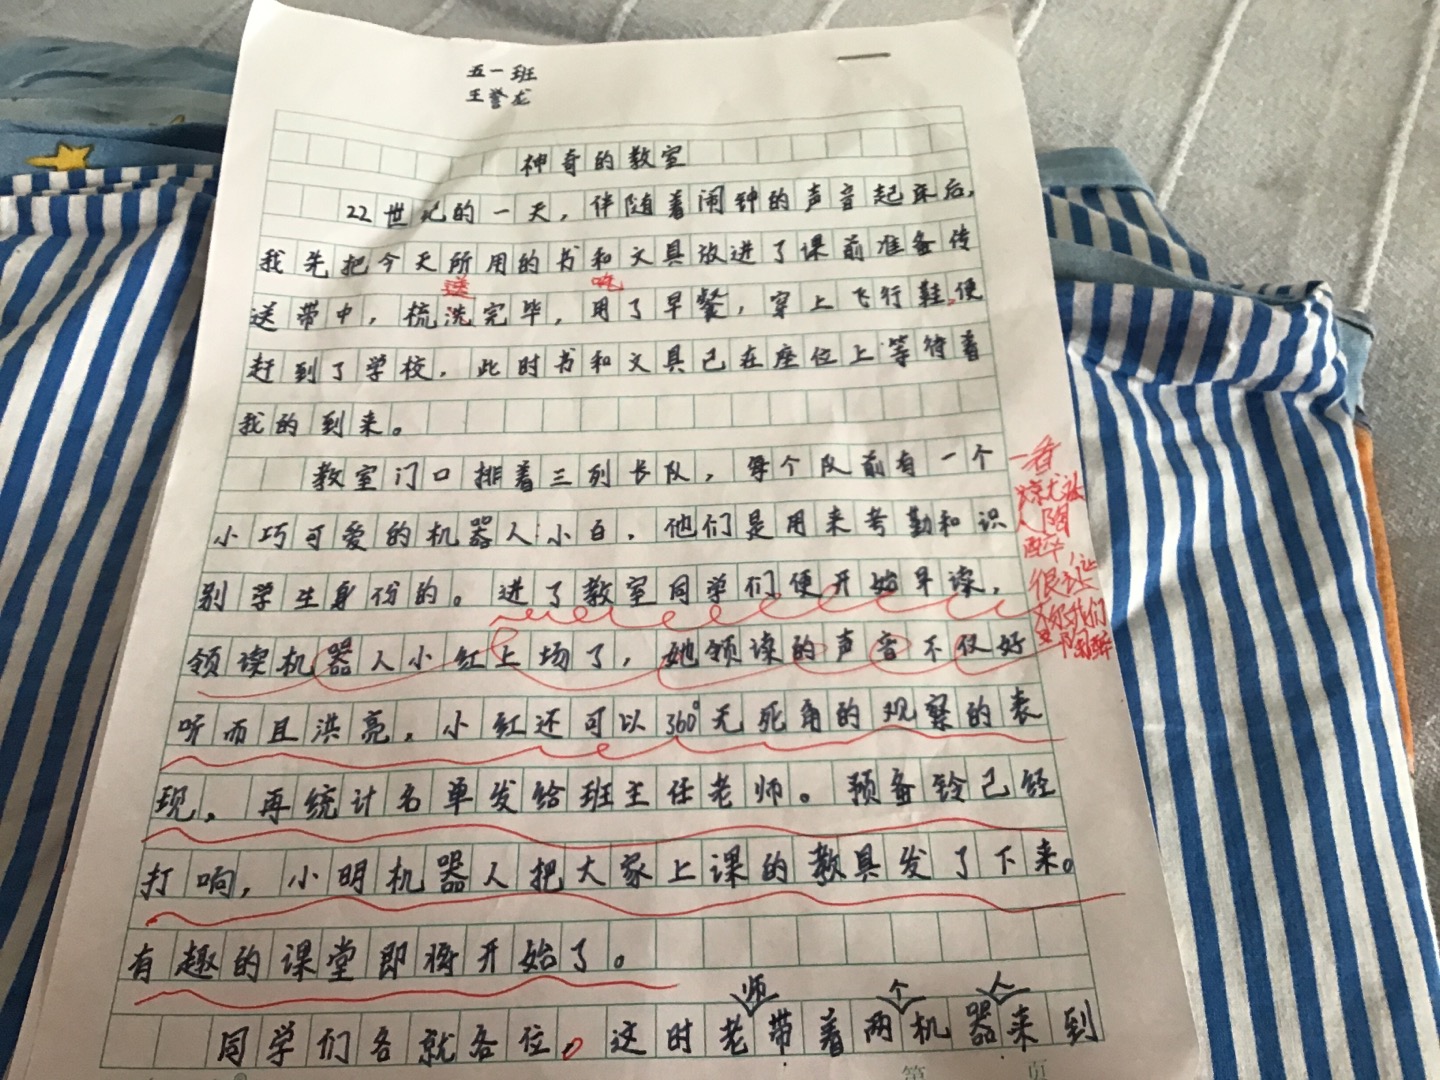 五一班
王誉龙
神奇的教室
22世纪的一天，伴随着闹钟的声音起床后，
我先把今天所用的书和文具放进了课前准备传
送 吃
送带中，梳洗完毕，用了早餐，穿上飞行鞋，便
赶到了学校，此时书和文具已在座位上等待着
我的到来。
教室门口排着三列长队，每个队前有一个
小巧可爱的机器人：小白，他们是用来考勤和识
别学生身份的。进了教室同学们便开始早读，
领读机器人小红上场了，她领读的声音不仅好
听而且洪亮，小红还可以360°无死角的观察的表
现，再统计名单发给班主任老师。预备铃已经
打响，小明机器人把大家上课的教具发了下来。
有趣的课堂即将开始了。
师 个 人
同学们各就各位。这时老带着两机器来到
第 页
一看
就让
人陶
醉，
很让
我们
陶醉